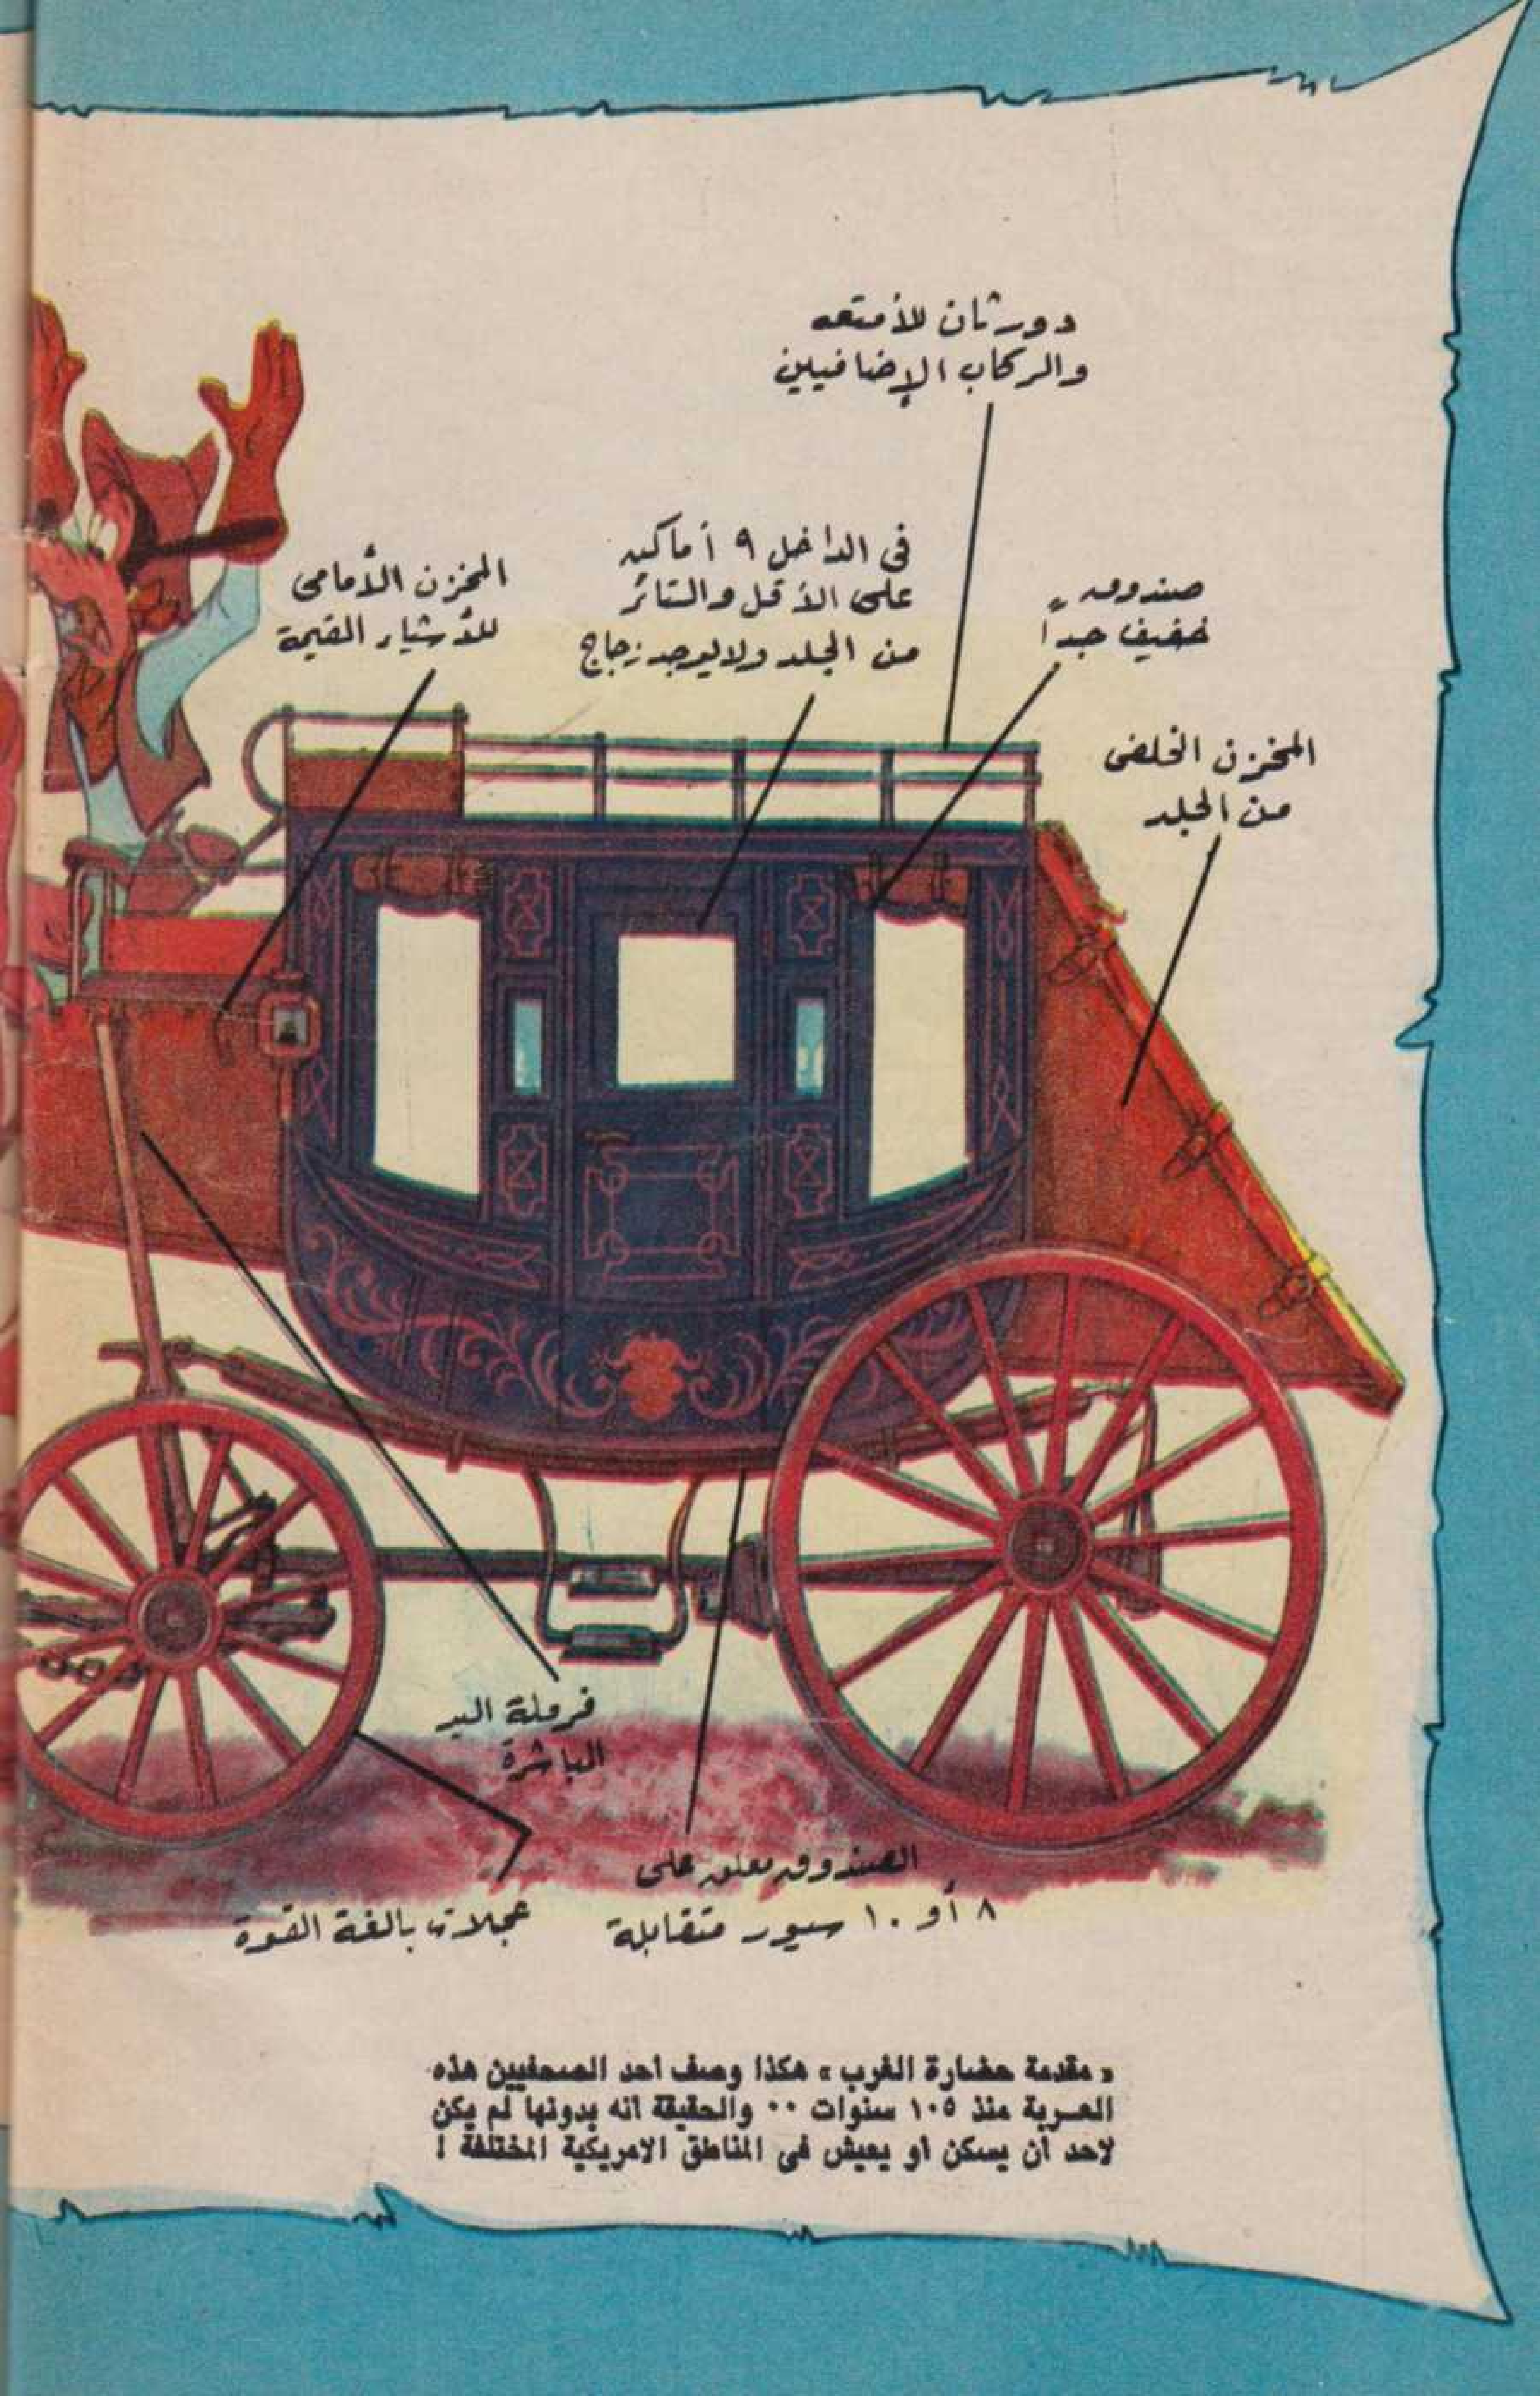 دور ثان للأمتعه
والركاب الإضافيين
صندوق
خفيف جداً
فى الداخل ٩ أماكن
على الأقل والستائر
من الجلد ولا يوجد زجاج
المخزن الأمامى
للأشياء القيمة
المخزن الخلفى
من الجلد
فرملة اليد
المباشرة
الصندوق معلق على
٨ أو ١٠ سيور متقابلة
عجلات بالغة القوة
« مقدمة حضارة الغرب » هكذا وصف أحد الصحفيين هذه
العربة منذ ١٠٥ سنوات ٠٠ والحقيقة أنه بدونها لم يكن
لاحد أن يسكن أو يعيش فى المناطق الامريكية المختلفة !